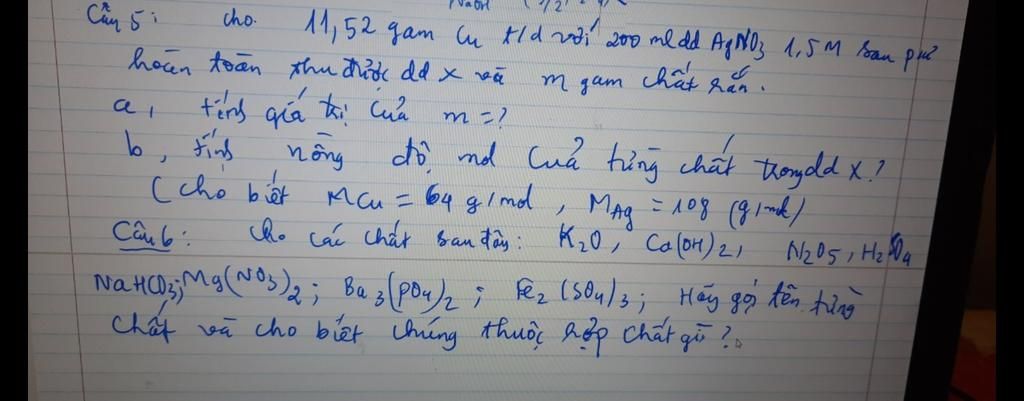 NaOH
Câu 5: cho 11,52 gam Cu t/d với 200 ml dd AgNO3 1,5M sau pư
hoàn toàn thu được dd X và m gam chất rắn.
a, tính giá trị của m = ?
b, tính nồng độ mol của từng chất trong dd X?
(cho biết MCu = 64 g/mol, MAg = 108 (g/mol)
Câu 6: Cho các chất sau đây: K2O, Ca(OH)2, N2O5, H2SO4
NaHCO3; Mg(NO3)2; Ba3(PO4)2; Fe2(SO4)3; Hãy gọi tên từng
chất và cho biết chúng thuộc hợp chất gì?